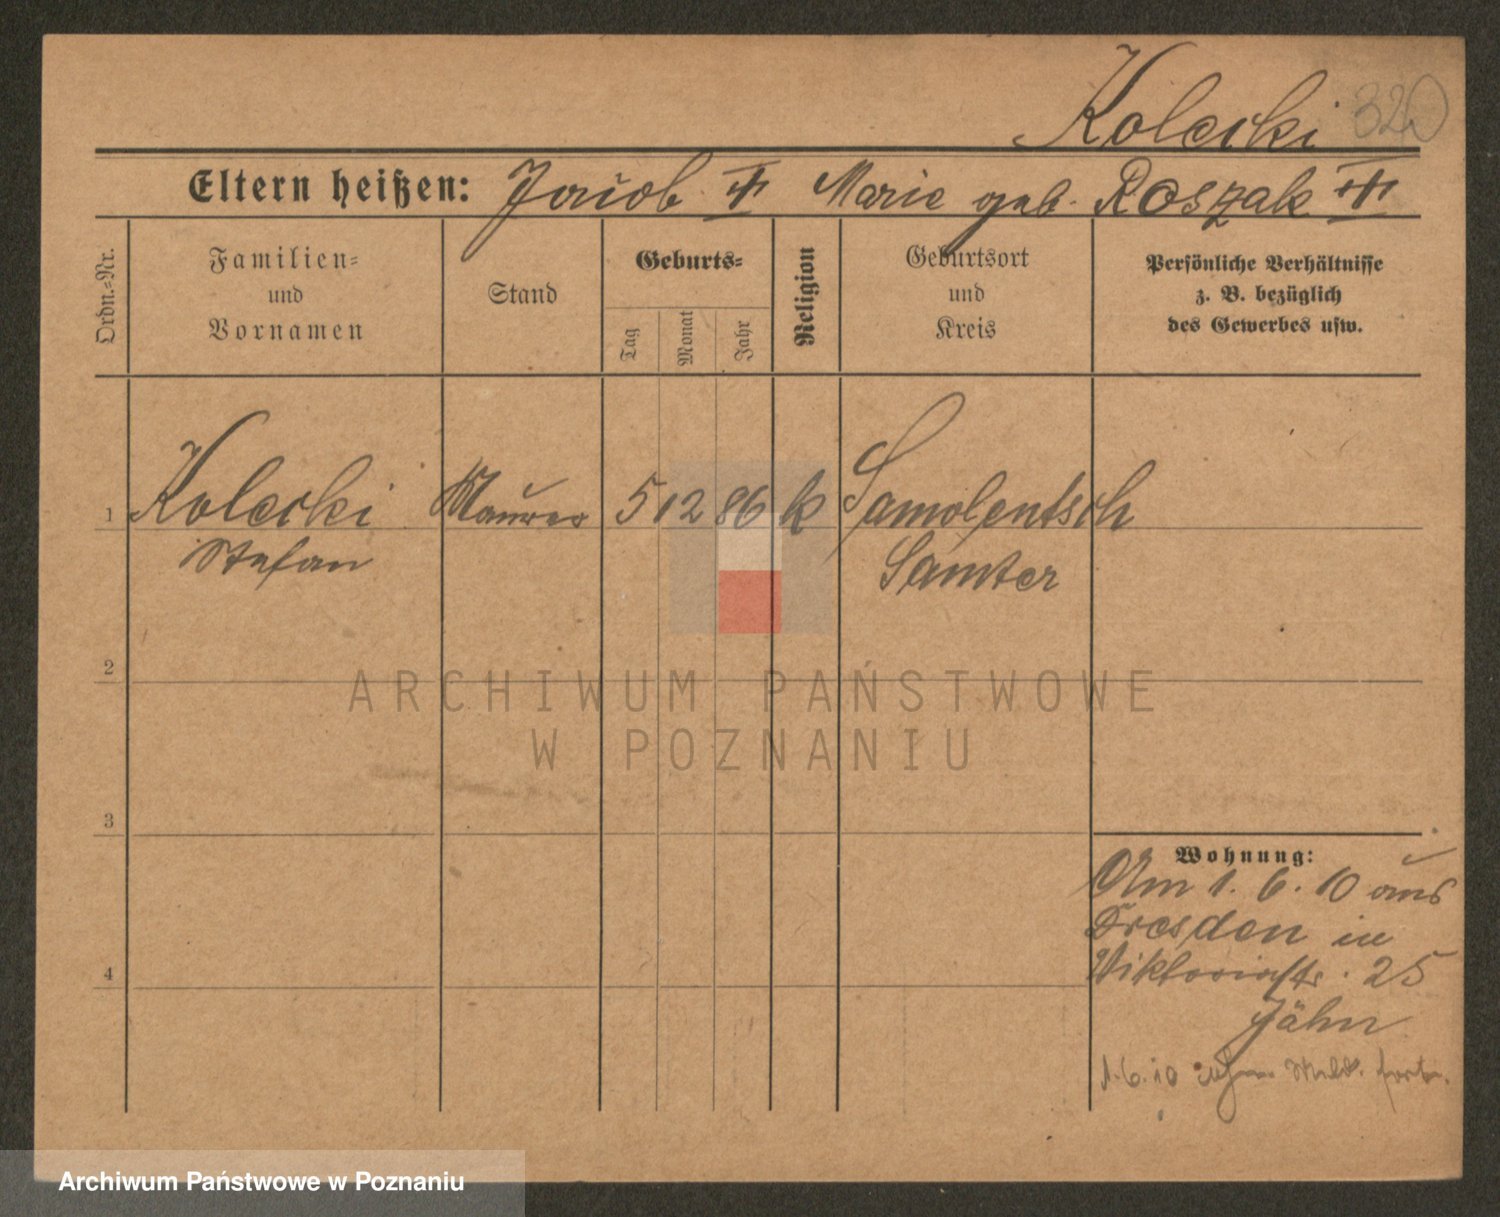 Kolecki 320
Eltern heißen: Jacob † Marie geb. Roszak †
Ordn.-Nr.
Familien-
und
Vornamen
Stand
Geburts-
Tag
Monat
Jahr
Religion
Geburtsort
und
Kreis
Persönliche Verhältnisse
z. B. bezüglich
des Gewerbes usw.
1 Kolecki Maurer 5 12 86 k Samolentsch
Stefan Samter
2
3
4
Wohnung:
Am 1. 6. 10 aus
Dresden in
Viktoriastr. 25
Jähn
1.6.10 ohne Meld. fort.
ARCHIWUM PAŃSTWOWE
W POZNANIU
Archiwum Państwowe w Poznaniu